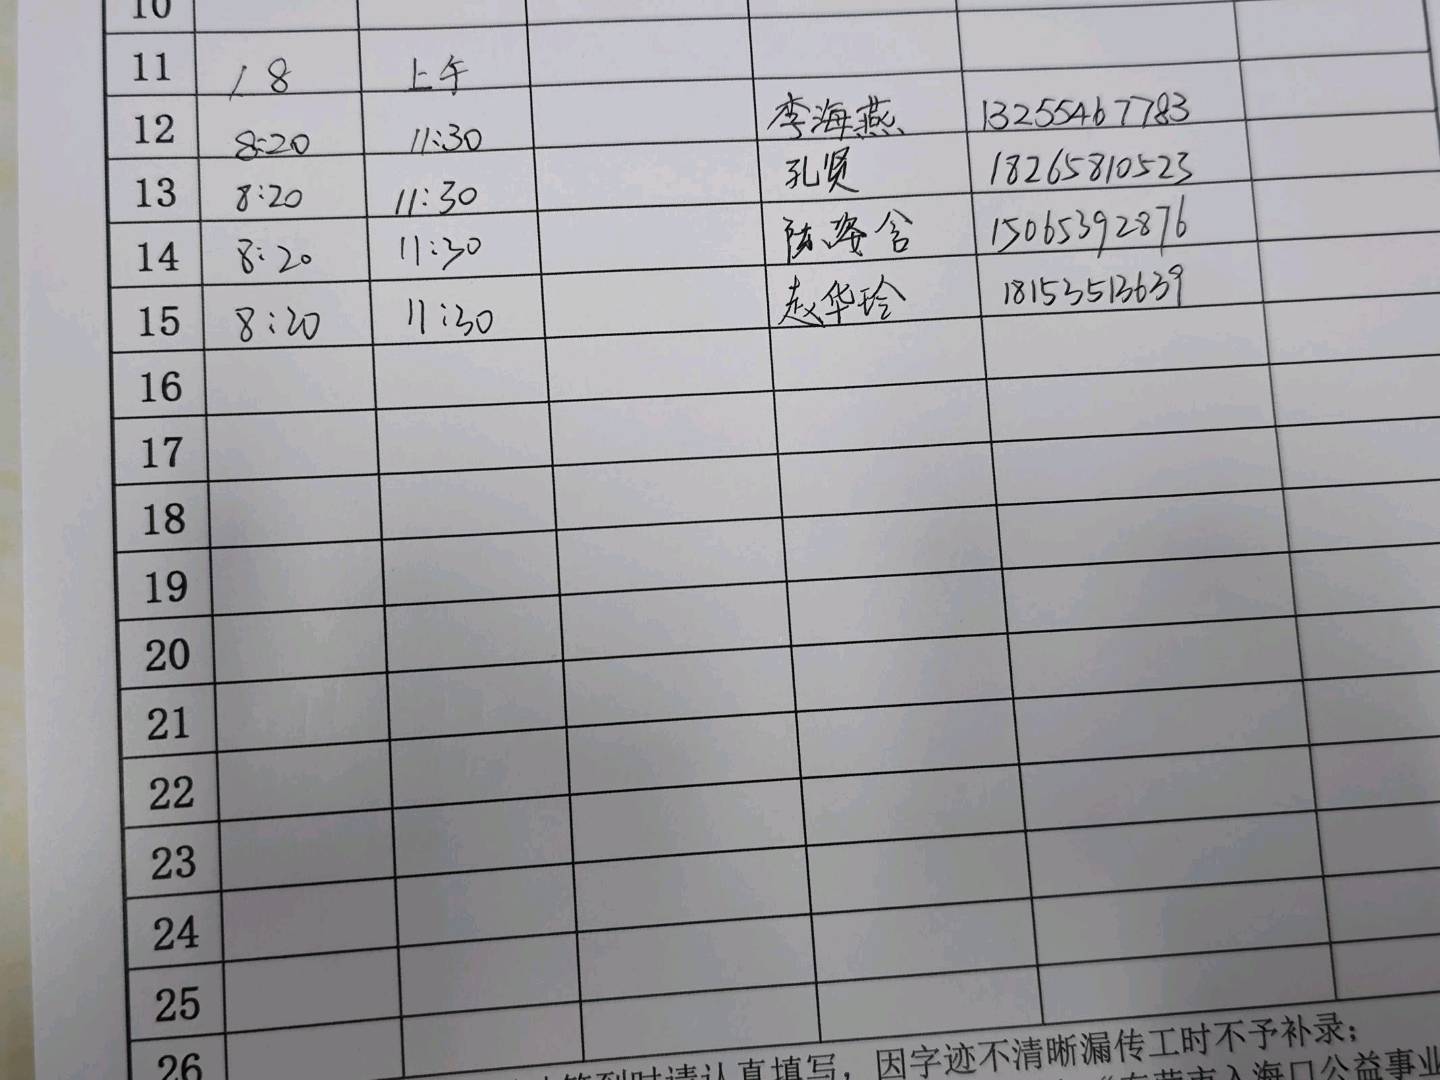 10
11 1 8 上午
12 8:20 11:30 李海燕 13255467783
13 8:20 11:30 孔贤 18265810523
14 8:20 11:30 陈姿含 15065392876
15 8:20 11:30 赵华玲 18153513639
16
17
18
19
20
21
22
23
24
25
26
签到时请认真填写，因字迹不清晰漏传工时不予补录；
“东营市入海口公益事业